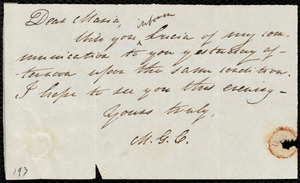 Dear Maria,
inform
Will you Lucia of my com-
munication to you yesterday af-
ternoon upon the same condition.
I hope to see you this evening—
Yours truly,
M. G. C.
193